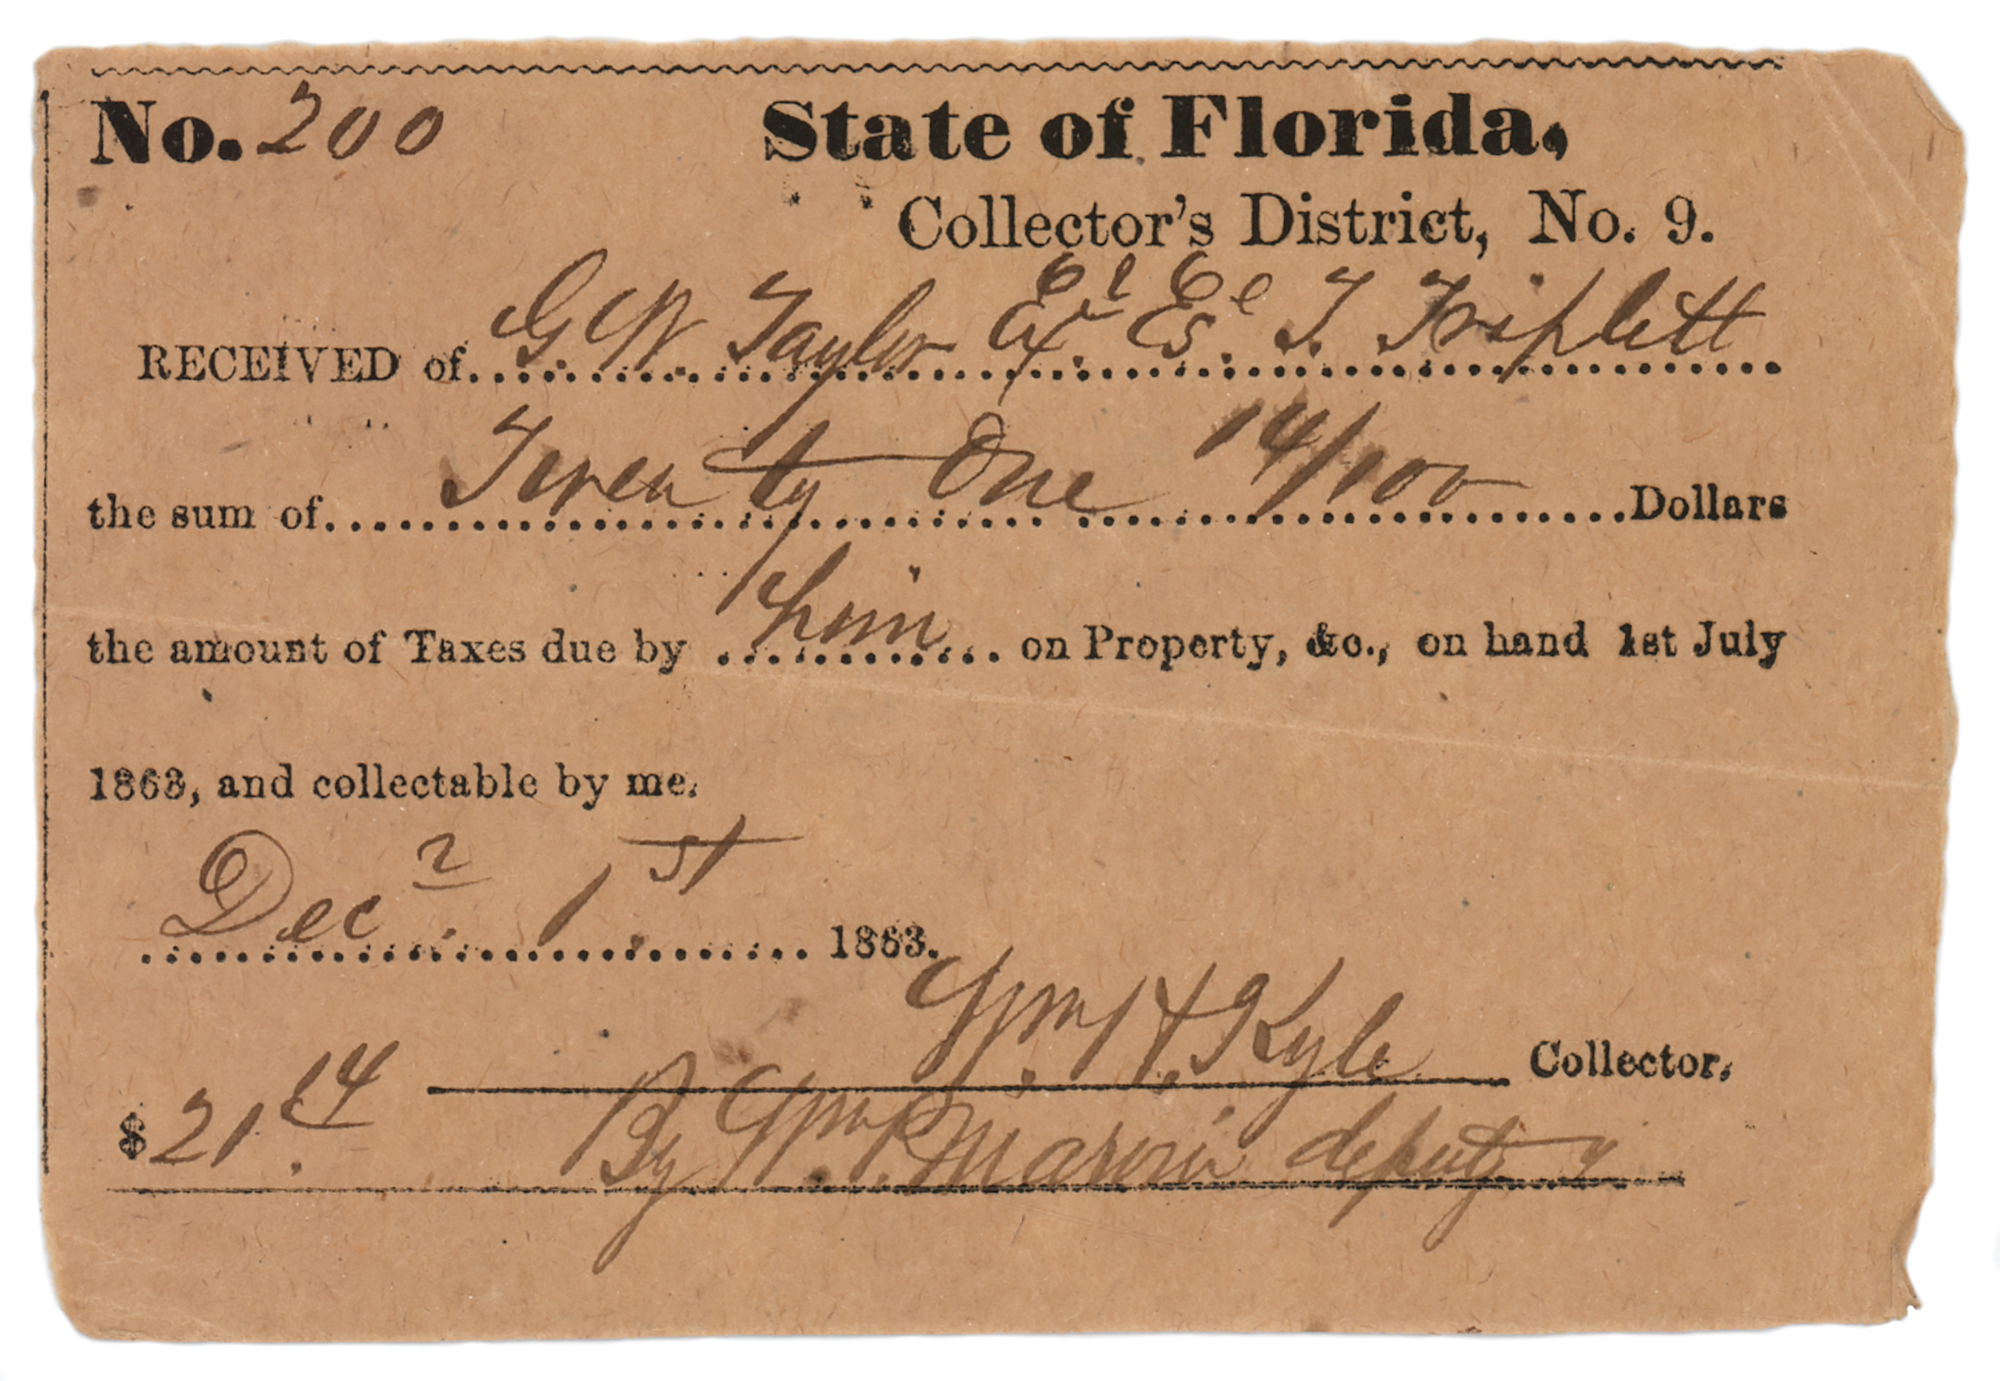 No. 200 State of Florida,
Collector's District, No. 9.
RECEIVED of G. W. Taylor Ex. Es. T. Triplett
the sum of Twenty One 14/100 Dollars
the amount of Taxes due by him on Property, &c., on hand 1st July
1863, and collectable by me.
Decr. 1st 1863.
Wm. H. Kyle Collector.
$21.14 By Wm. P. Marvin deputy